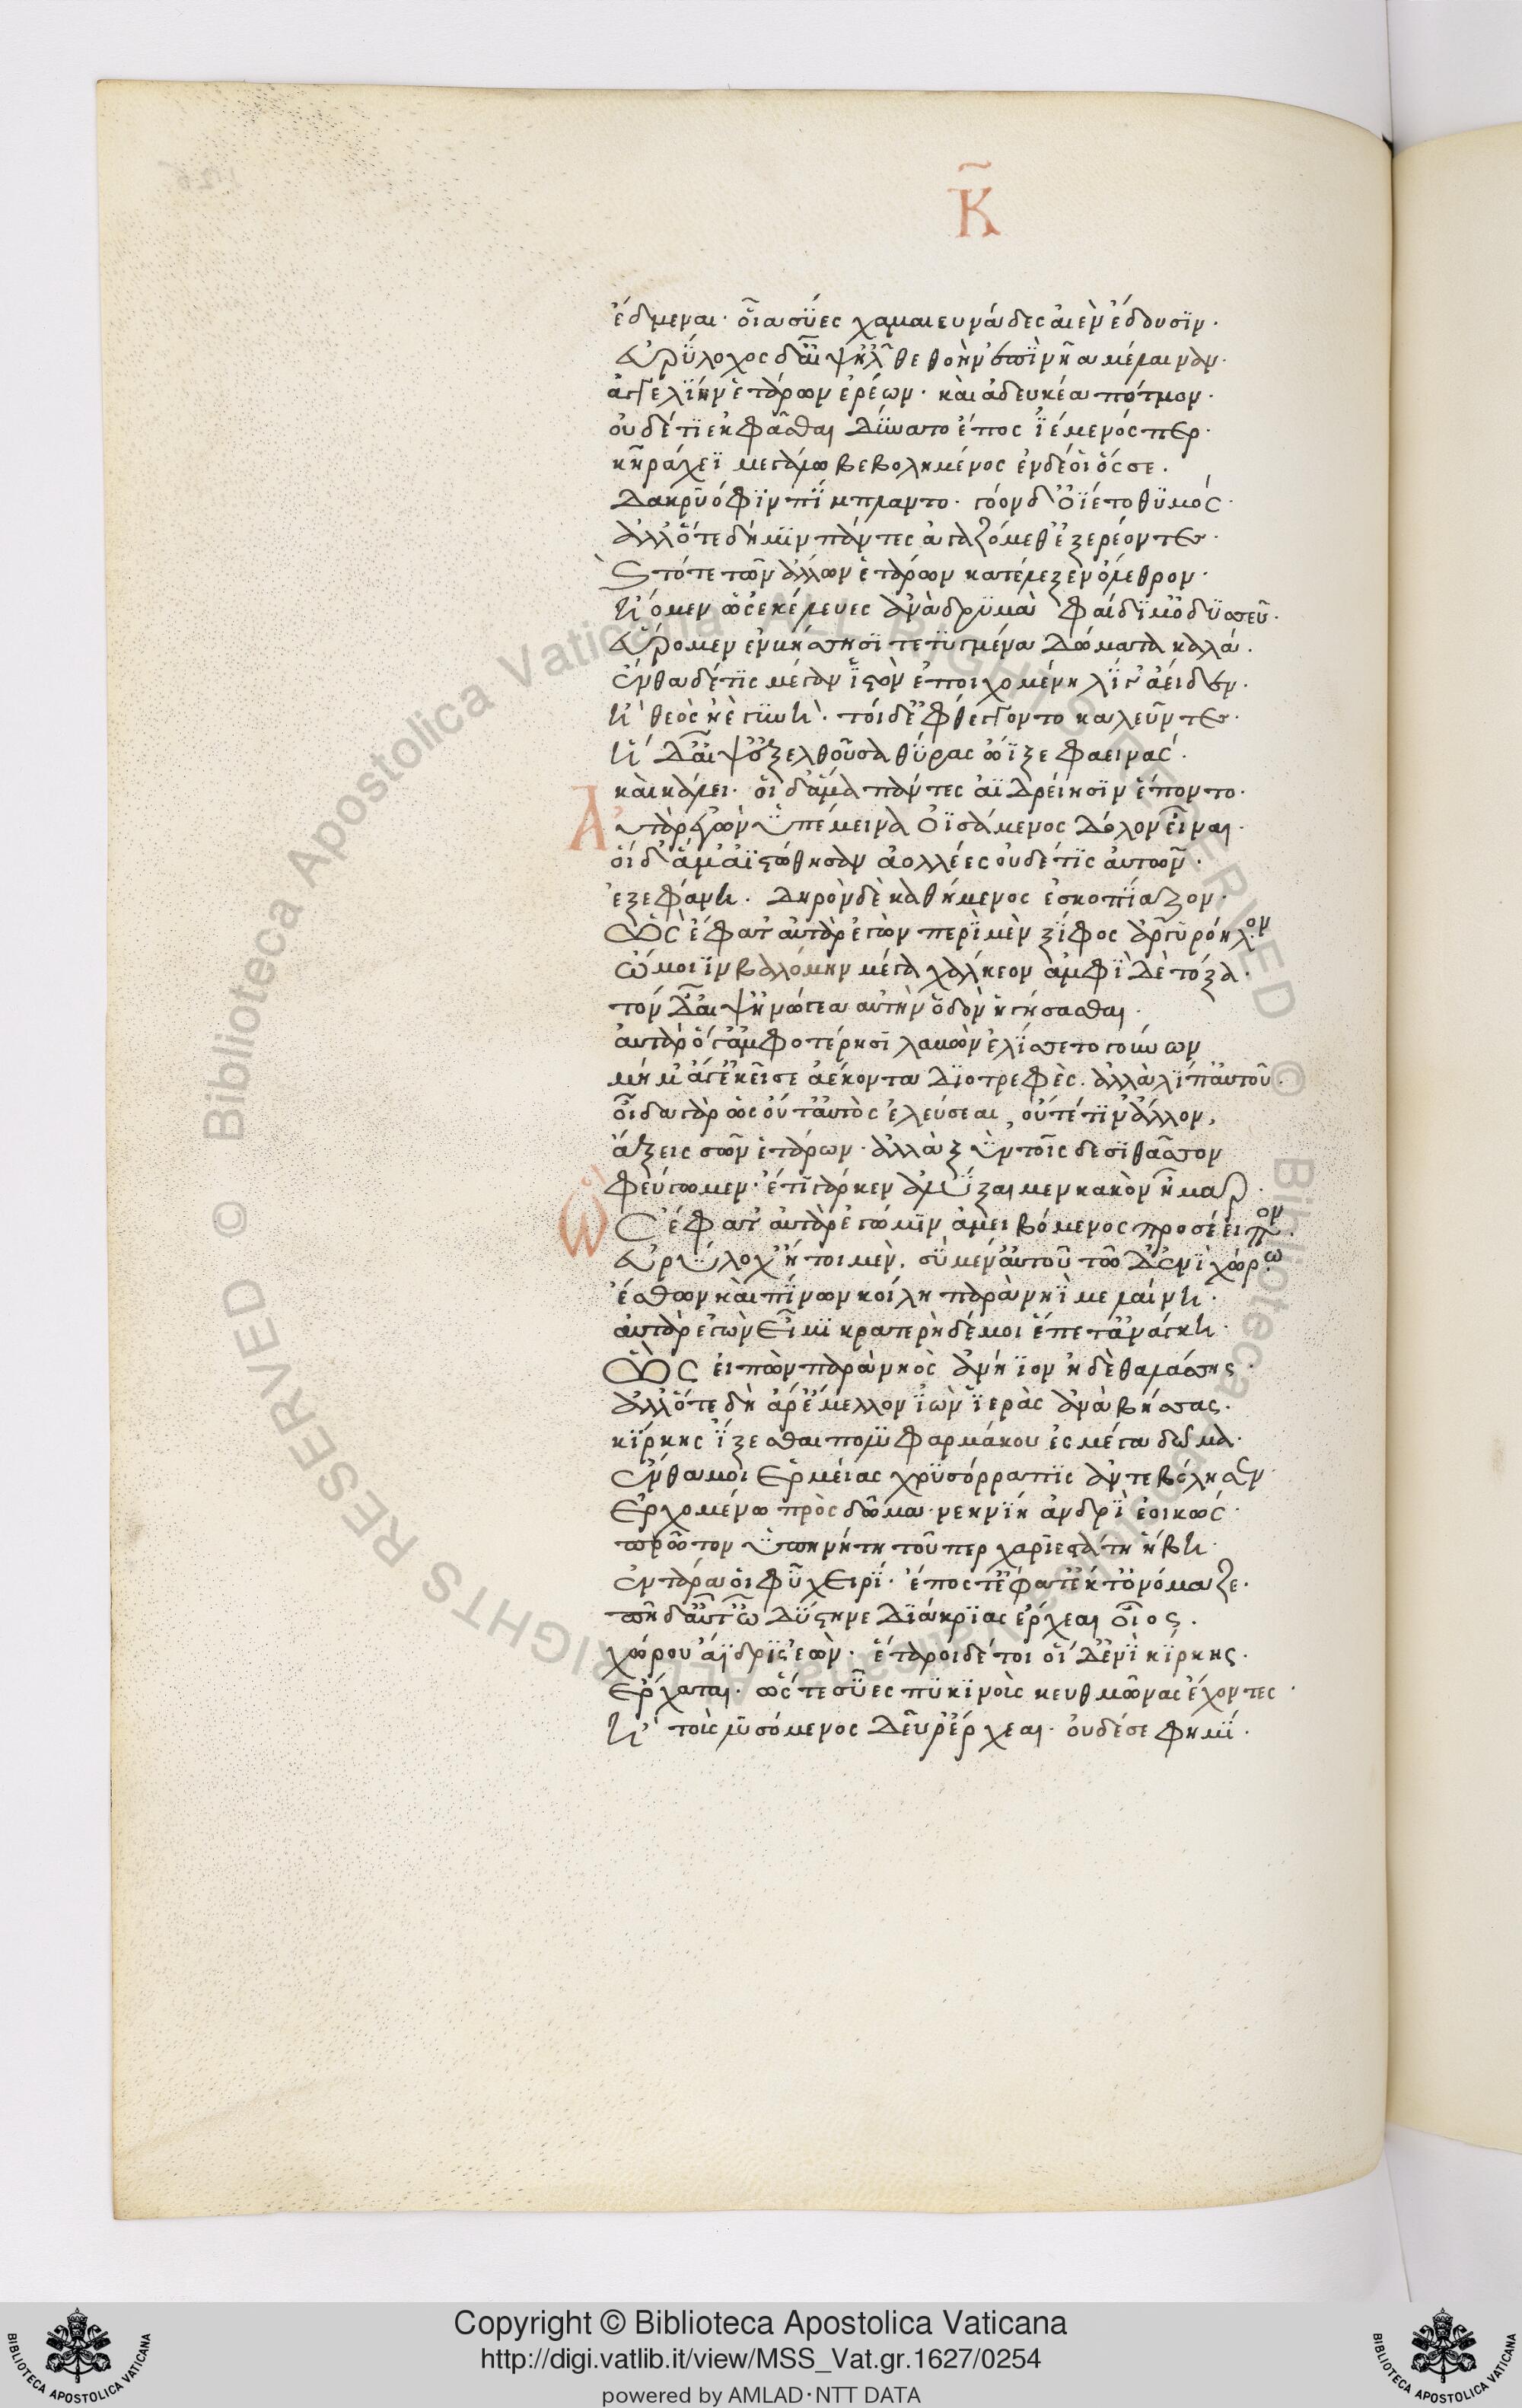 Κ̃
ἔδμεναι· οἷα σύες χαμαιευνάδες αἰὲν ἔδουσϊν·
Εὐρύλοχος δ' αἶψ' ἦλθε θοὴν ἐπῒ νῆα μέλαιναν·
ἀγγελΐην ἑτάρων ἐρέων· καὶ ἀδευκέα πότμον·
οὐδέ τϊ ἐκφάσθαι δύνατο ἔπος ϊέμενός περ·
κῆρ ἄχεϊ μεγάλω βεβολημένος ἐν δέ οἱ ὄσσε.
Δακρϋόφϊν πΐμπλαντο· γόον δ' ὠΐετο θϋμός·
ἀλλ' ὅτε δή μϊν πάντες ἀγαζόμεθ' ἐξερέοντες·
ϗ τότε τῶν ἄλλων ἑτάρων κατέλεξεν ὄλεθρον·
Ἤομεν ὡς ἐκέλευες ἀνὰ δρϋμὰ φαίδϊμ' ὀδϋσσεῦ·
Εὕρομεν ἐν βήσσησϊ τετϋγμένα δώματα καλά.
ἔνθα δέ τϊς μέγαν ϊστὸν ἐποιχομένη λΐγ' ἄειδεν·
Ἢ θεὸς ἠὲ γϋνή· τοὶ δὲ φθέγγοντο καλεῦντες·
Ἡ δ' αἶψ' ἐξελθοῦσα θύρας ὤϊξε φαεινάς·
καὶ κάλει· οἱ δ' ἅμα πάντες ἀϊδρείησϊν ἕποντο·
Αὐτὰρ ἐγὼν ὑπέμεινα ὀϊσάμενος δόλον εἶναι·
οἱ δ' ἅμ' ἀϊστώθησαν ἀολλέες οὐδέ τϊς αὐτῶν·
ἐξεφάνη. Δηρὸν δὲ καθήμενος ἐσκοπΐαζον·
Ὣς ἔφατ' αὐτὰρ ἐγὼν περῒ μὲν ξΐφος ἀργϋρόηλον
ὤμοιϊν βαλόμην μέγα χάλκεον ἀμφῒ δὲ τόξα·
τὸν δ' αἶψ' ἠνώγεα αὐτὴν ὁδὸν ἡγήσασθαι·
αὐτὰρ ὅγ' ἀμφοτέρησϊ λαβὼν ἐλΐσσετο γούνων
μή μ' ἄγε κεῖσε ἀέκοντα δϊοτρεφὲς. ἀλλὰ λΐπ' αὐτοῦ·
οἶδα γὰρ ὡς οὔτ' αὐτὸς ἐλεύσεαι, οὔτέ τϊν' ἄλλον,
ἄξεις σῶν ἑτάρων· ἀλλὰ ξὺν τοῖς δεσϊ θᾶσσον
φεύγωμεν· ἔτϊ γάρ κεν ἀλύξαιμεν κακὸν ἦμαρ·
Ὣς ἔφατ' αὐτὰρ ἐγώ μϊν ἀμειβόμενος προσέειπον·
Εὐρύλοχ' ἤτοι μὲν, σὺ μέν' αὐτοῦ τῶ δ' ἐνῒ χώρω
ἔσθων καὶ πΐνων κοίλη παρὰ νηῒ μελαίνη·
αὐτὰρ ἐγὼν εἶμϊ κρατερὴ δέ μοι ἔπετ' ἀνάγκη·
Ὣς εἰπὼν παρὰ νηὸς ἀνήϊον ἠδὲ θαλάσσης·
ἀλλ' ὅτε δὴ ἄρ' ἔμελλον ϊὼν ϊερὰς ἀνὰ βήσσας.
κΐρκης ΐξεσθαι πολϋφαρμάκου ἐς μέγα δῶμα·
ἔνθα μοι Ἑρμείας χρϋσόρραπϊς ἀντεβόλησεν·
Ἐρχομένω πρὸς δῶμα· νεηνΐη ἀνδρῒ ἐοικώς·
πρῶτον ὑπηνήτη τοῦ περ χαρϊεστάτη ἥβη·
ἔν τ' ἄρα οἱ φῦ χειρΐ· ἔπος τ' ἔφατ' ἔκ τ' ὀνόμαζε·
πῆ δ' αὖτ' ὦ δύστηνε δϊ' ἄκρϊας ἔρχεαι οἶος.
χώρου ἄϊδρϊς ἐών· ἕταροι δέ τοι οἵδ' ἐνῒ κΐρκης·
Ἔρχαται· ὥς τε σύες πϋκϊνοὶς κευθμῶνας ἔχοντες·
Ἦ τοὶς λϋσόμενος δεῦρ' ἔρχεαι· οὐδέ σε φημΐ·
Copyright © Biblioteca Apostolica Vaticana
http://digi.vatlib.it/view/MSS_Vat.gr.1627/0254
powered by AMLAD·NTT DATA